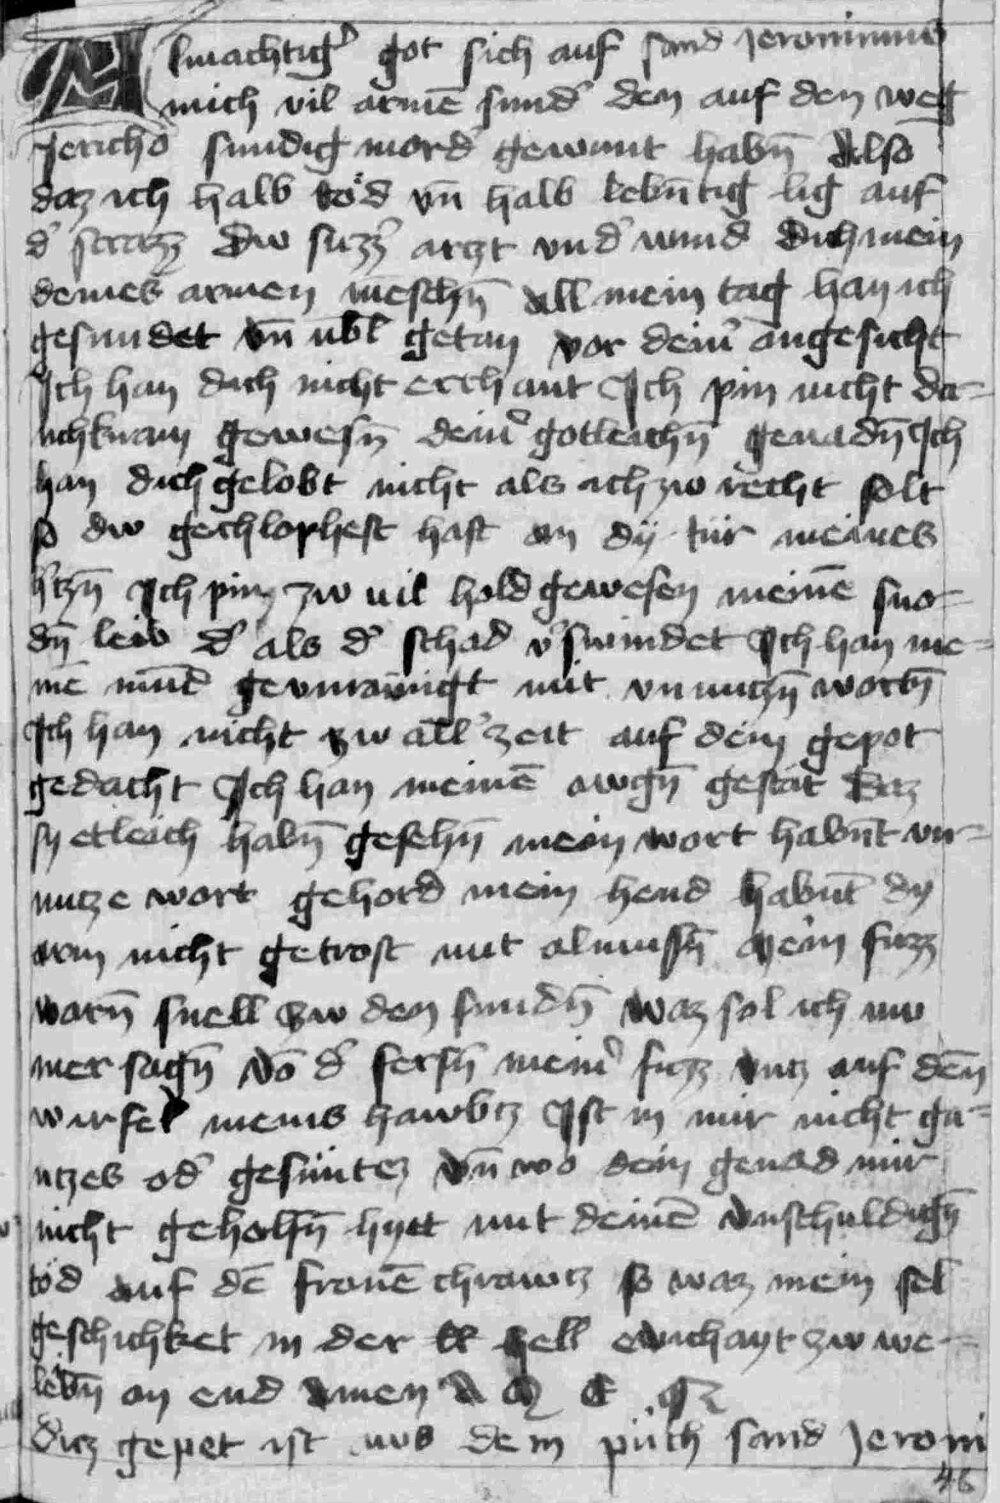 Almachtig̉ got sich auf sand Jeronimus
mich vil armē sund̉ den auf den weg
Jericho sundig mord̉ gewunt habn̄ Also
daz ich halb töd vn̄ halb lebn̄tig lig auf
d̉ strazz Dw suzz̉ arczt vnd̉wind dich mein
deines armen mēschn̄ All mein tag han ich
gesundet vn̄ vbl̄ getan vor dein̉ angesicht
Ich han dich nicht erchant Ich pin nicht da-
nchknam gewesn̄ dein̉ gotleichn̄ genadn̄ Ich
han dich gelobt nicht als ich zw recht solt
so dw gechlophest hast an dy tür meines
h̉czn̄ Ich pin zw vil hold gewesen meinē sno-
dn̄ leib d̉ als d̉ schad v̉swindet Ich han me-
inē mūd gevnrainigt mit vnnutzn̄ wortn̄
Ich han nicht zw all̉ zeit auf dein gepot
gedacht Ich han meinē awgn̄ gestat Daz
sy etleich habn̄ gesehn̄ mein wort habn̄t vn-
nutze wort gehord mein hend habn̄t dy
arm nicht getrost mit almusn̄ Mein fuzz
warn̄ snell zw den sundn̄ Waz sol ich nw
mer sagn̄ Vō d̉ fersn̄ mein̉ fuzz vncz auf den
wirfel meins hawbtz Ist in mir nicht ga-
ntzes od̉ gesuntez Vn̄ wo dein genad mir
nicht geholfn̄ hyet mit deinē vnschuldign̄
töd auf dē fronē chrawtz so waz mein sel
geschichket in der hell ewichayt zw we-
lebn̄ an end Amen
Ditz gepet ist aus dem püch sand Jeroni
46